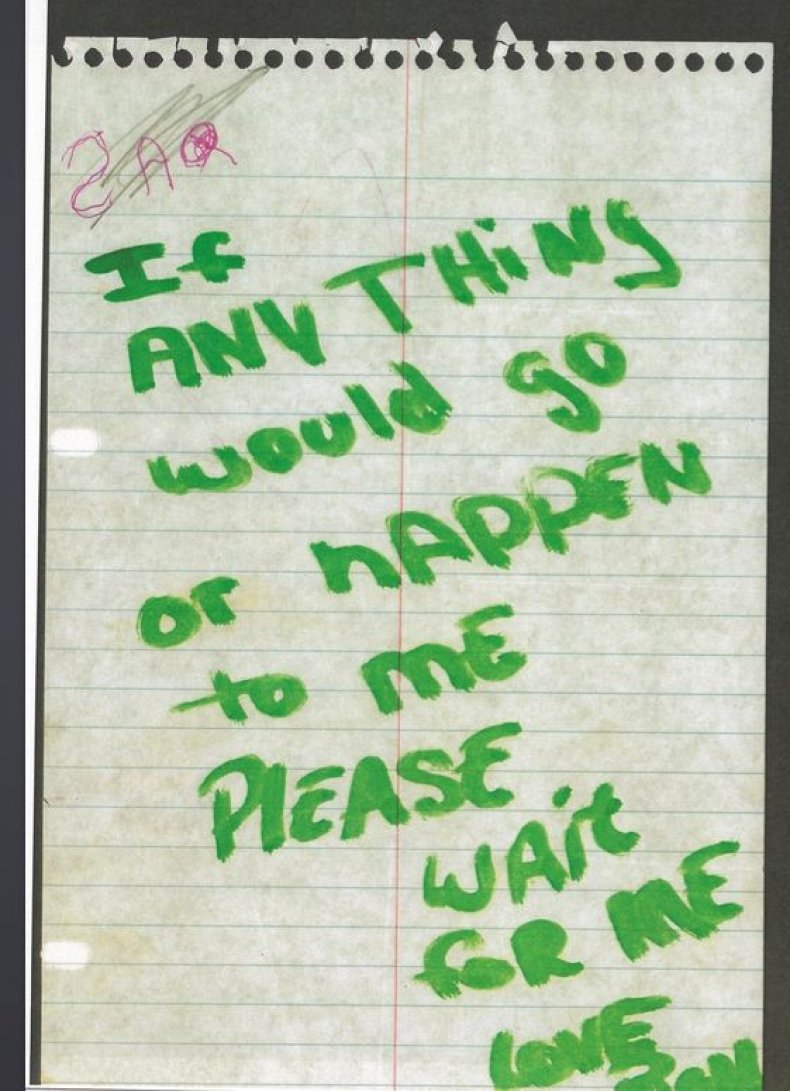 If
ANY THiNg
would go
or hAppEN
to mE
PlEASE
wAit
foR ME
LOVE